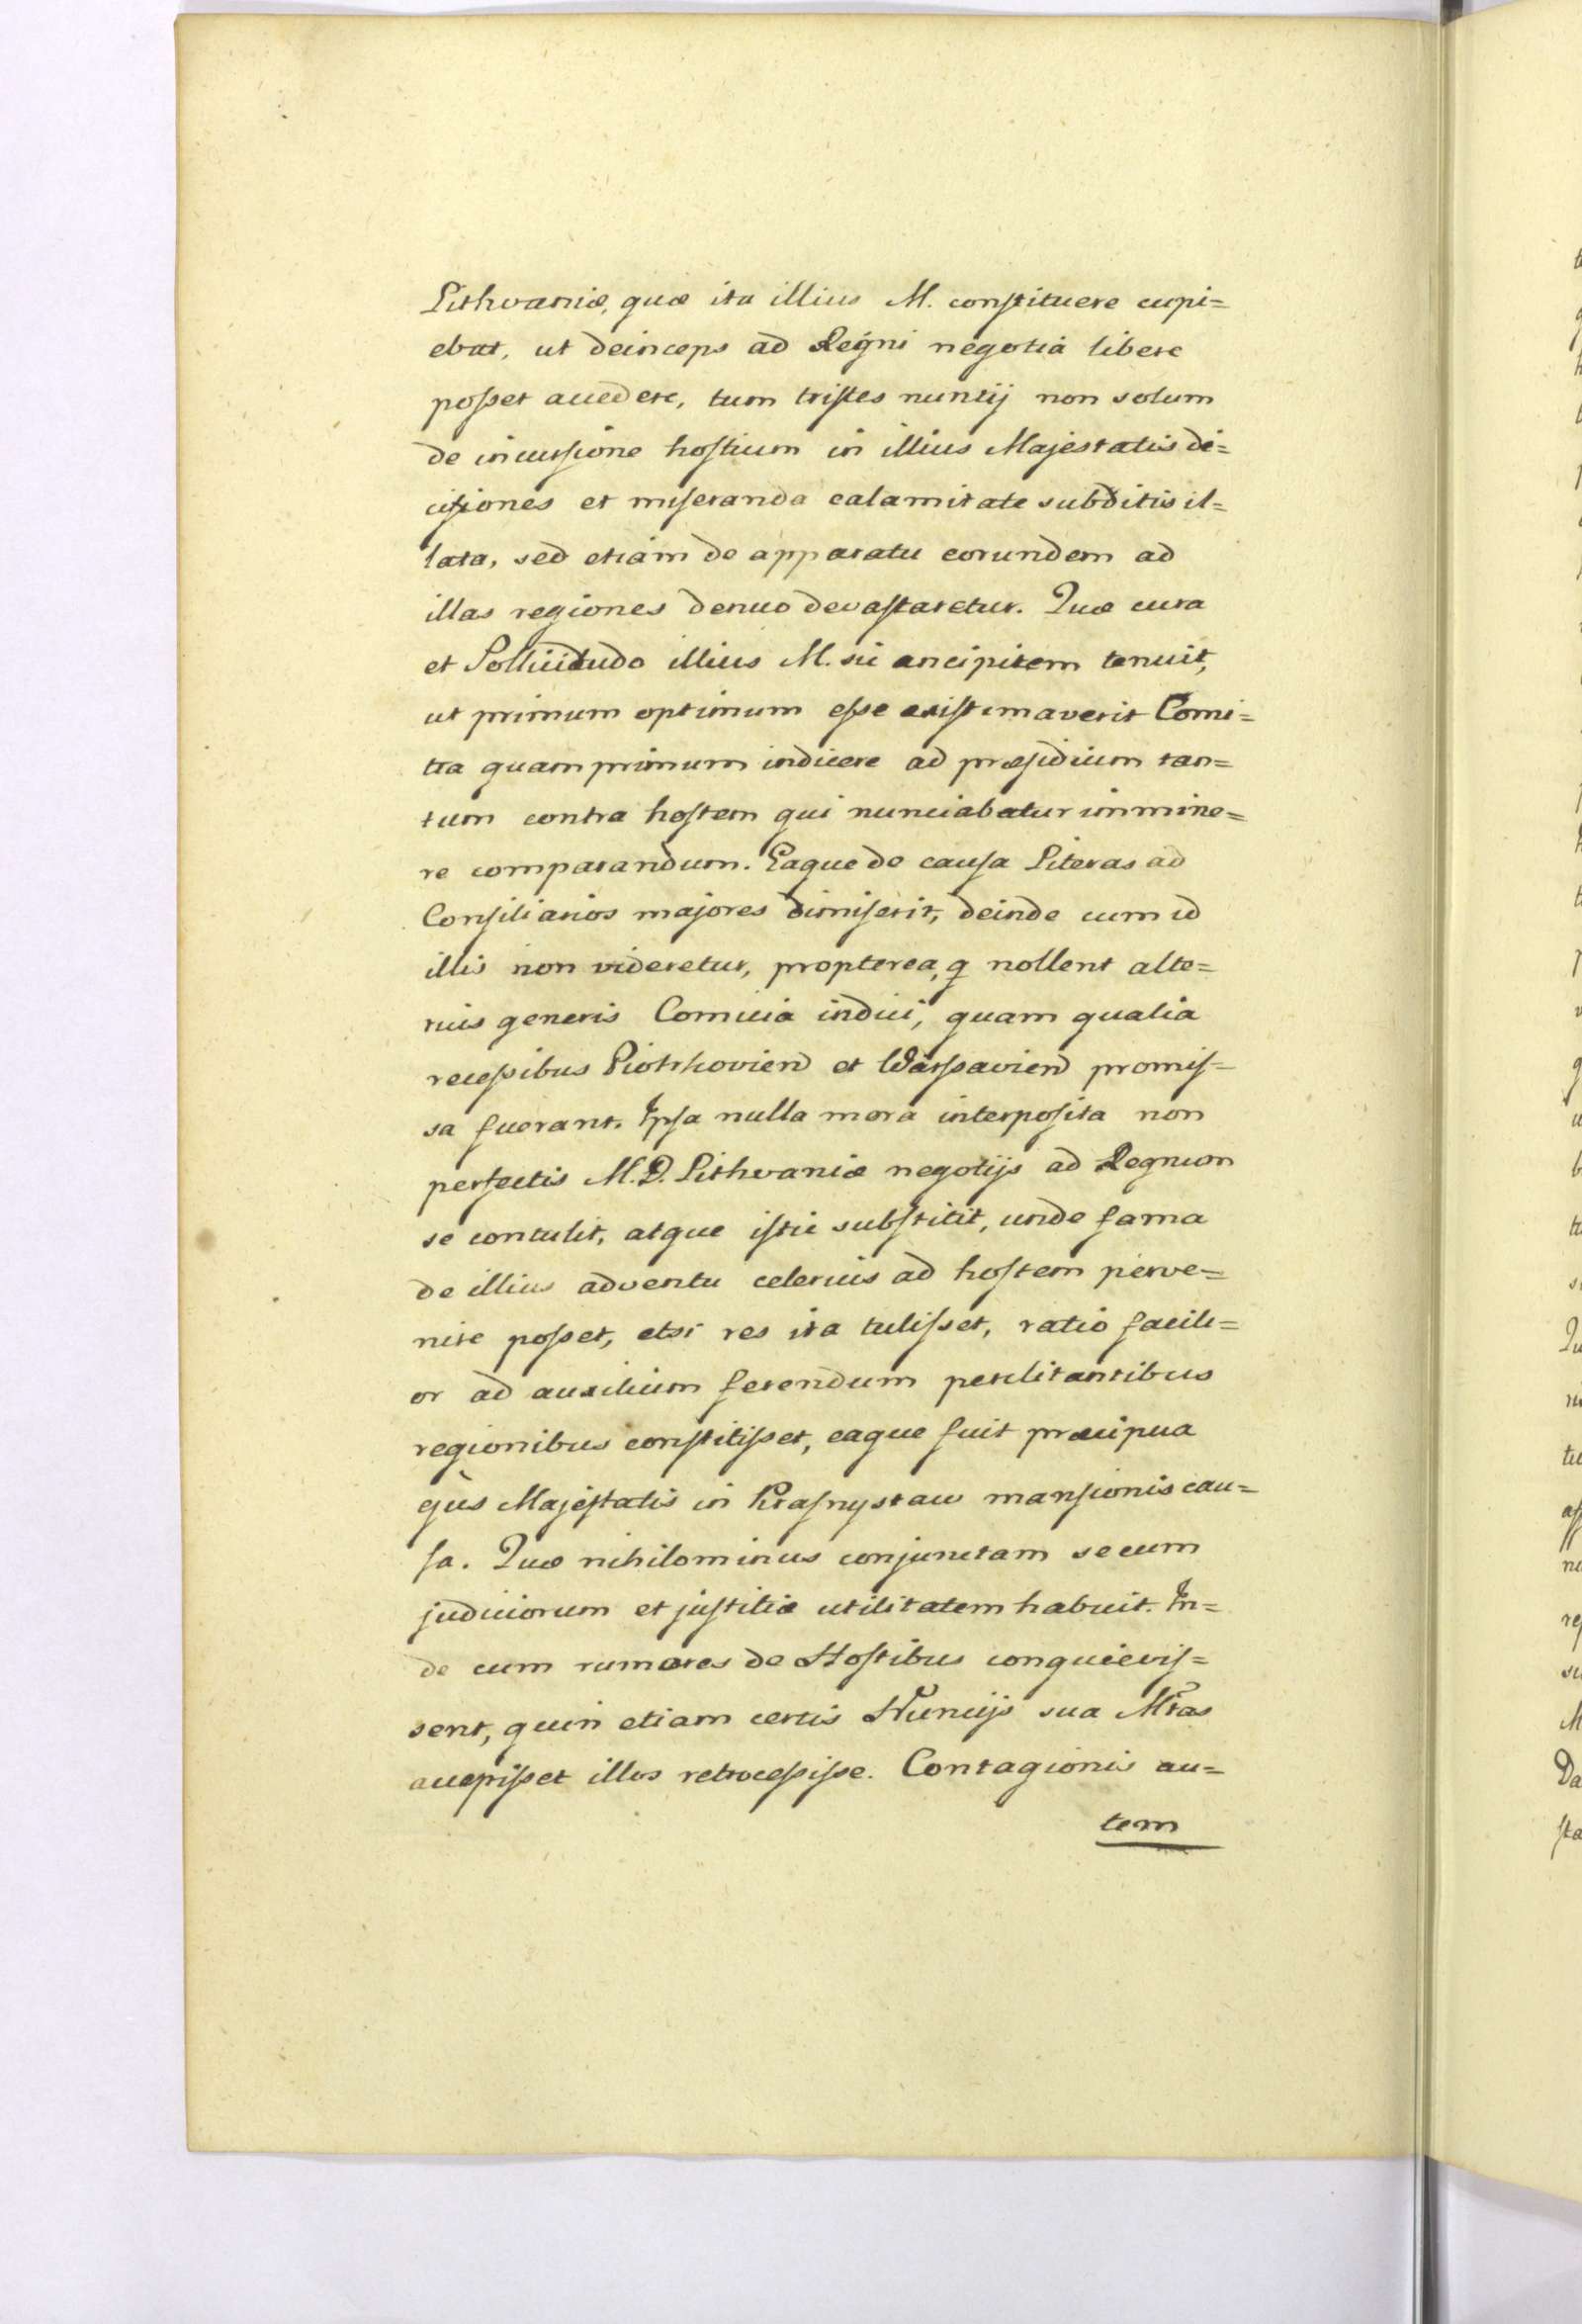 Lithvaniæ, quæ ita illius M. constituere cupi=
ebat, ut deinceps ad Regni negotia libere
posset accedere, tum tristes nuntij non solum
de incursione hostium in illius Majestatis di=
citiones et miseranda calamitate subditis il=
lata, sed etiam de apparatu eorundem ad
illas regiones denuo devastaretur. Quæ cura
et Sollicitudo illius M. sic ancipitem tenuit,
ut primum optimum esse existimaverit Comi=
tia quamprimum indicere ad præsidium tan=
tum contra hostem qui nunciabatur immine=
re comparandum. Eaque de causa Literas ad
Consiliarios majores dimiserit, deinde cum id
illis non videretur, propterea, q nollent alte=
rius generis Comicia indici, quam qualia
recessibus Piotrkovien et Warssavien promis=
sa fuerant. Ipsa nulla mora interposita non
perfectis M.D. Lithvaniæ negotijs ad Regnum
se contulit, atque istic substitit, unde fama
de illius adventu celerius ad hostem perve=
nire posset, etsi res ita tulisset, ratio facili=
or ad auxilium ferendum periclitantibus
regionibus constitisset, eaque fuit præcipua
ejus Majestatis in Krasnystaw mansionis cau=
sa. Quæ nihilominus conjunctam secum
judiciorum et justitiæ utilitatem habuit. In=
de cum rumores de Hostibus conquievis=
sent, quin etiam certis Nuncijs sua Mtas
accepisset illos retrocessisse. Contagionis au=
tem